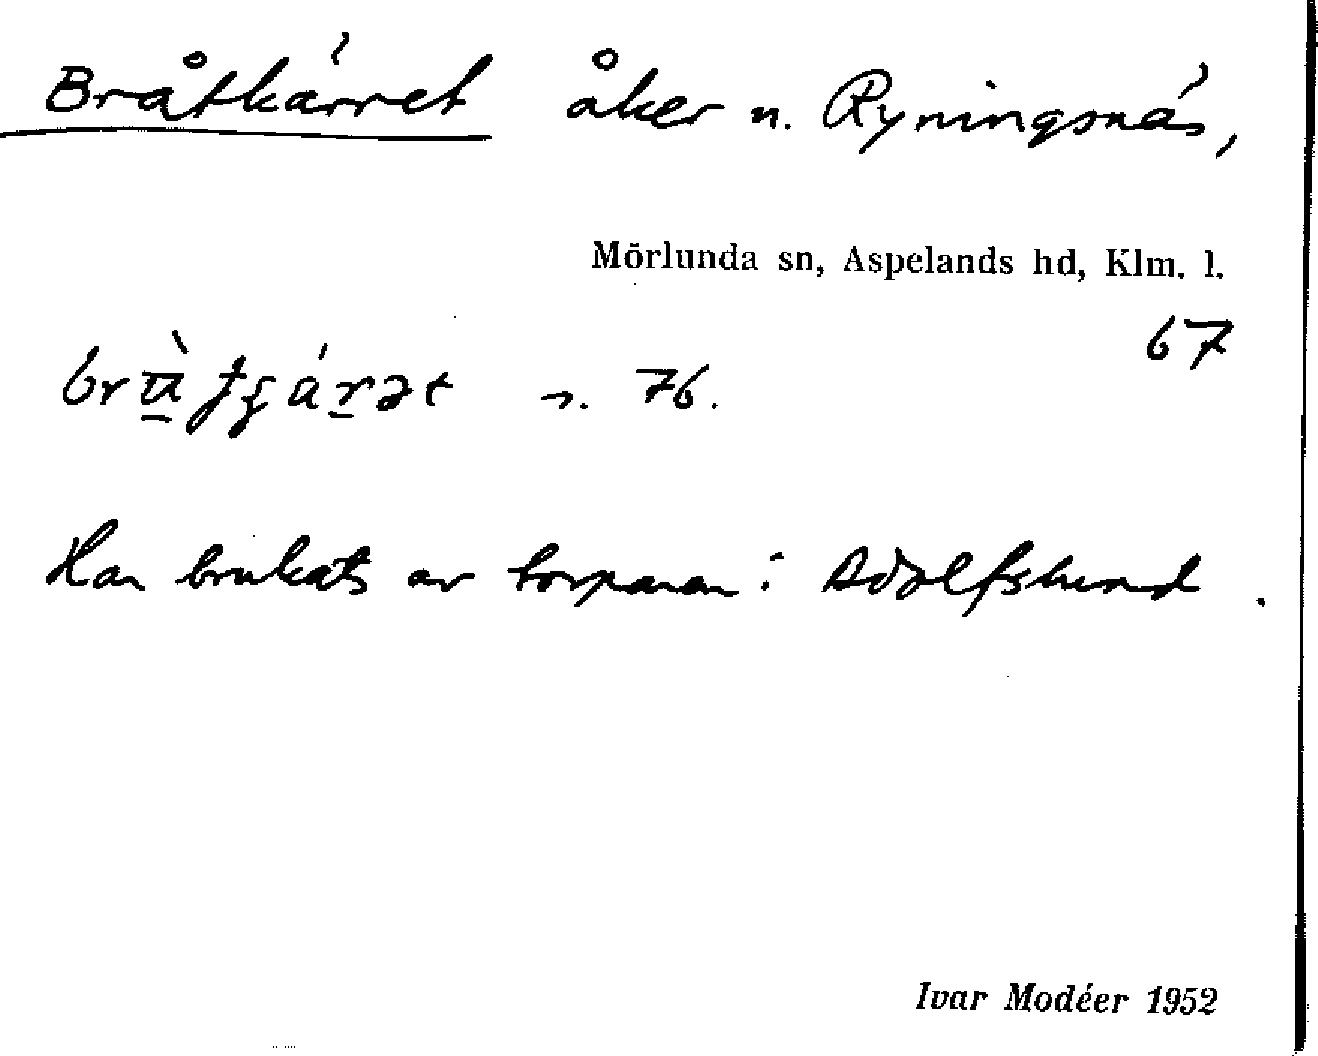 Bråtkärret åker n. Ryningsnäs,
Mörlunda sn, Aspelands hd, Klm. l.
67
n. 76.
Har brukats av torparen i Adolfslund.
Ivar Modéer 1952